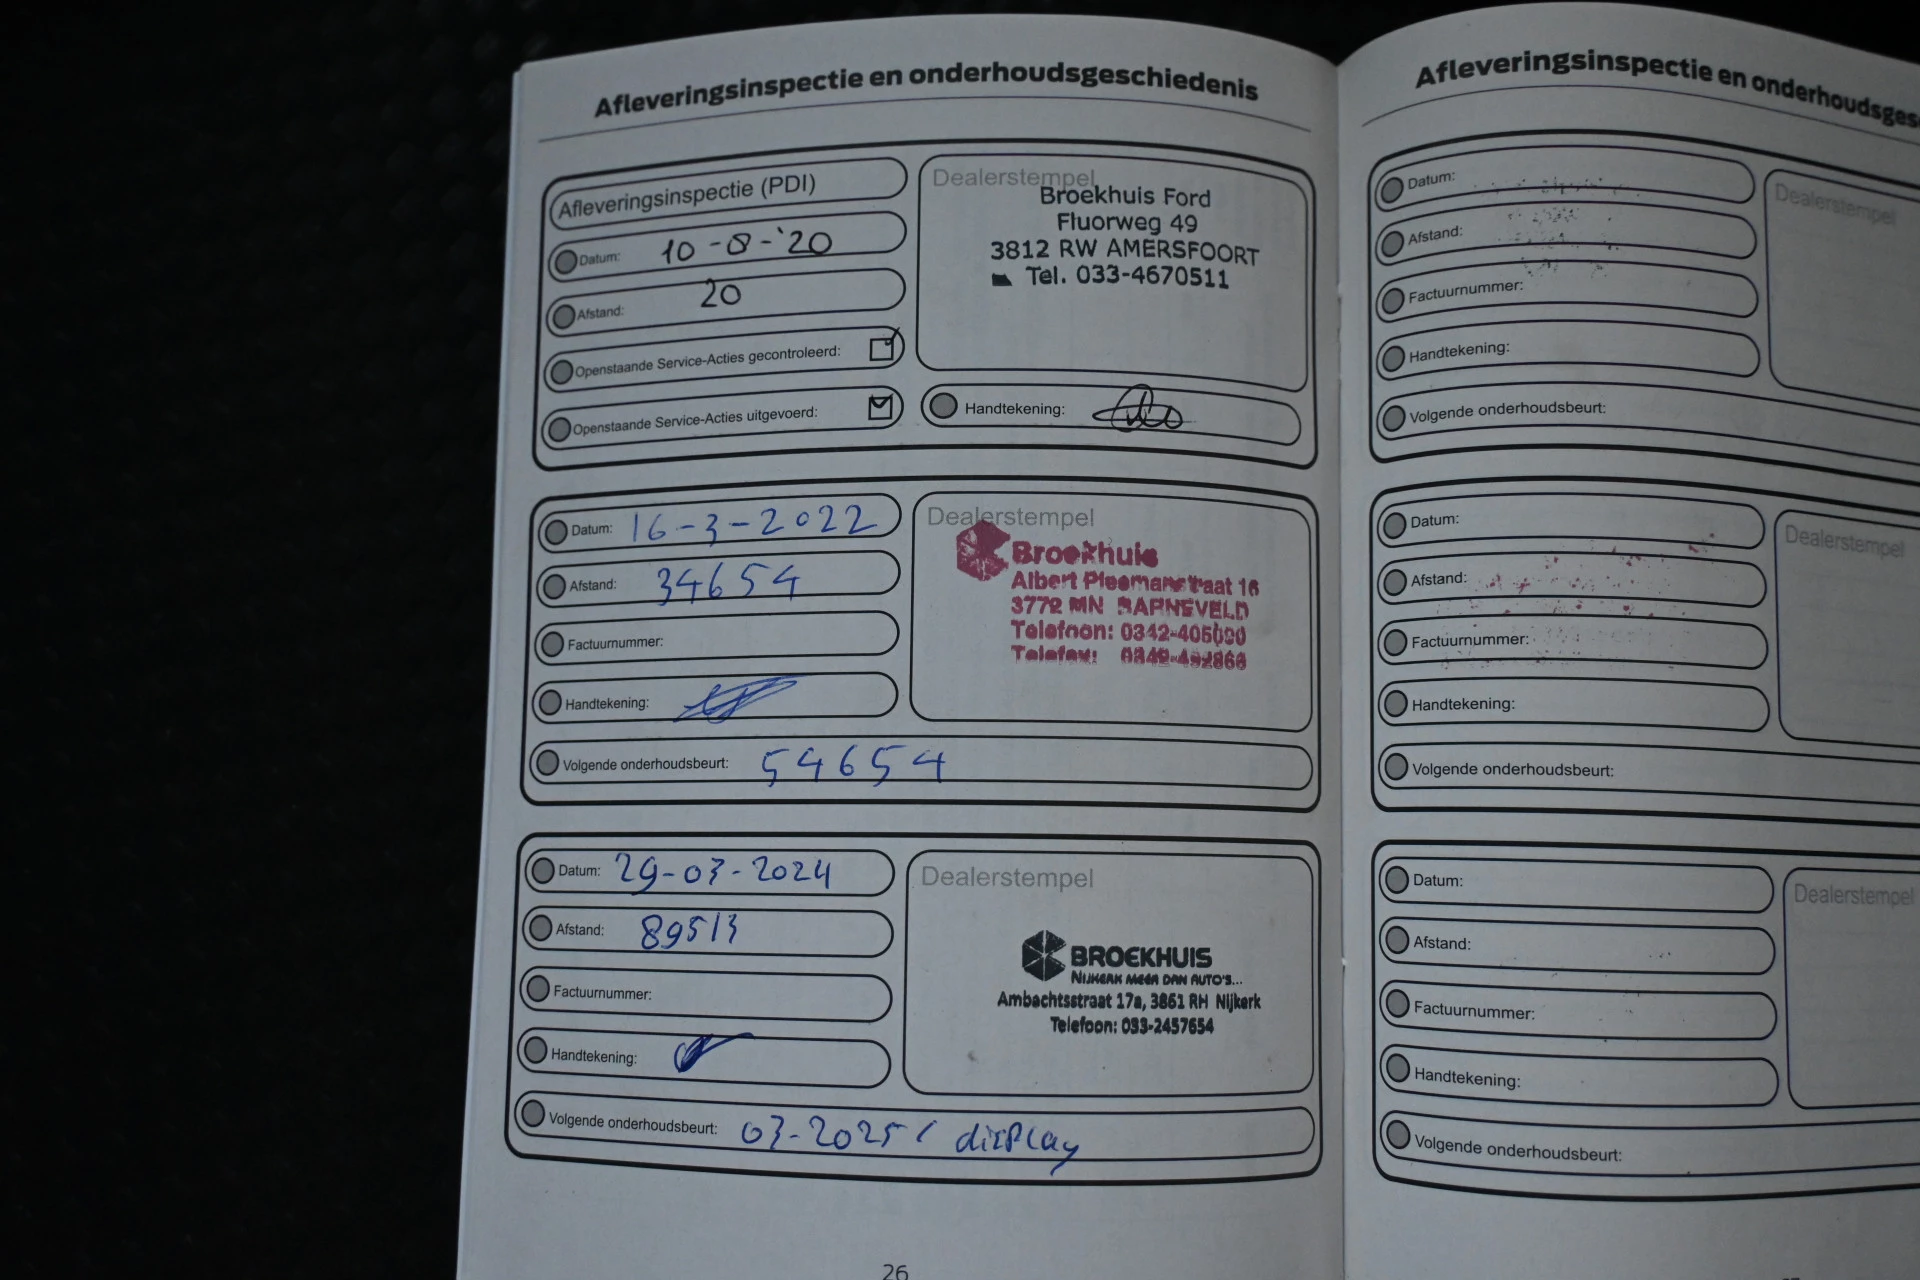 Afleveringsinspectie en onderhoudsgeschiedenis
Afleveringsinspectie (PDI)
Datum: 10-8-'20
Afstand: 20
Openstaande Service-Acties gecontroleerd:
Openstaande Service-Acties uitgevoerd:
Dealerstempel
Broekhuis Ford
Fluorweg 49
3812 RW AMERSFOORT
Tel. 033-4670511
Handtekening:
Datum: 16-3-2022
Afstand: 34654
Factuurnummer:
Handtekening:
Volgende onderhoudsbeurt: 54654
Dealerstempel
Broekhuis
Albert Plesmanstraat 16
3772 MN BARNEVELD
Telefoon:
Telefax:
Datum: 29-03-2024
Afstand: 89513
Factuurnummer:
Handtekening:
Volgende onderhoudsbeurt: 03-2025 / display
Dealerstempel
BROEKHUIS
NIJKERK MEER DAN AUTO'S...
Ambachtsstraat 17a, 3861 RH Nijkerk
Telefoon: 033-2457654
26
Afleveringsinspectie en onderhoudsges
Datum:
Afstand:
Factuurnummer:
Handtekening:
Volgende onderhoudsbeurt:
Dealerstempel
Datum:
Afstand:
Factuurnummer:
Handtekening:
Volgende onderhoudsbeurt:
Dealerstempel
Datum:
Afstand:
Factuurnummer:
Handtekening:
Volgende onderhoudsbeurt:
Dealerstempel